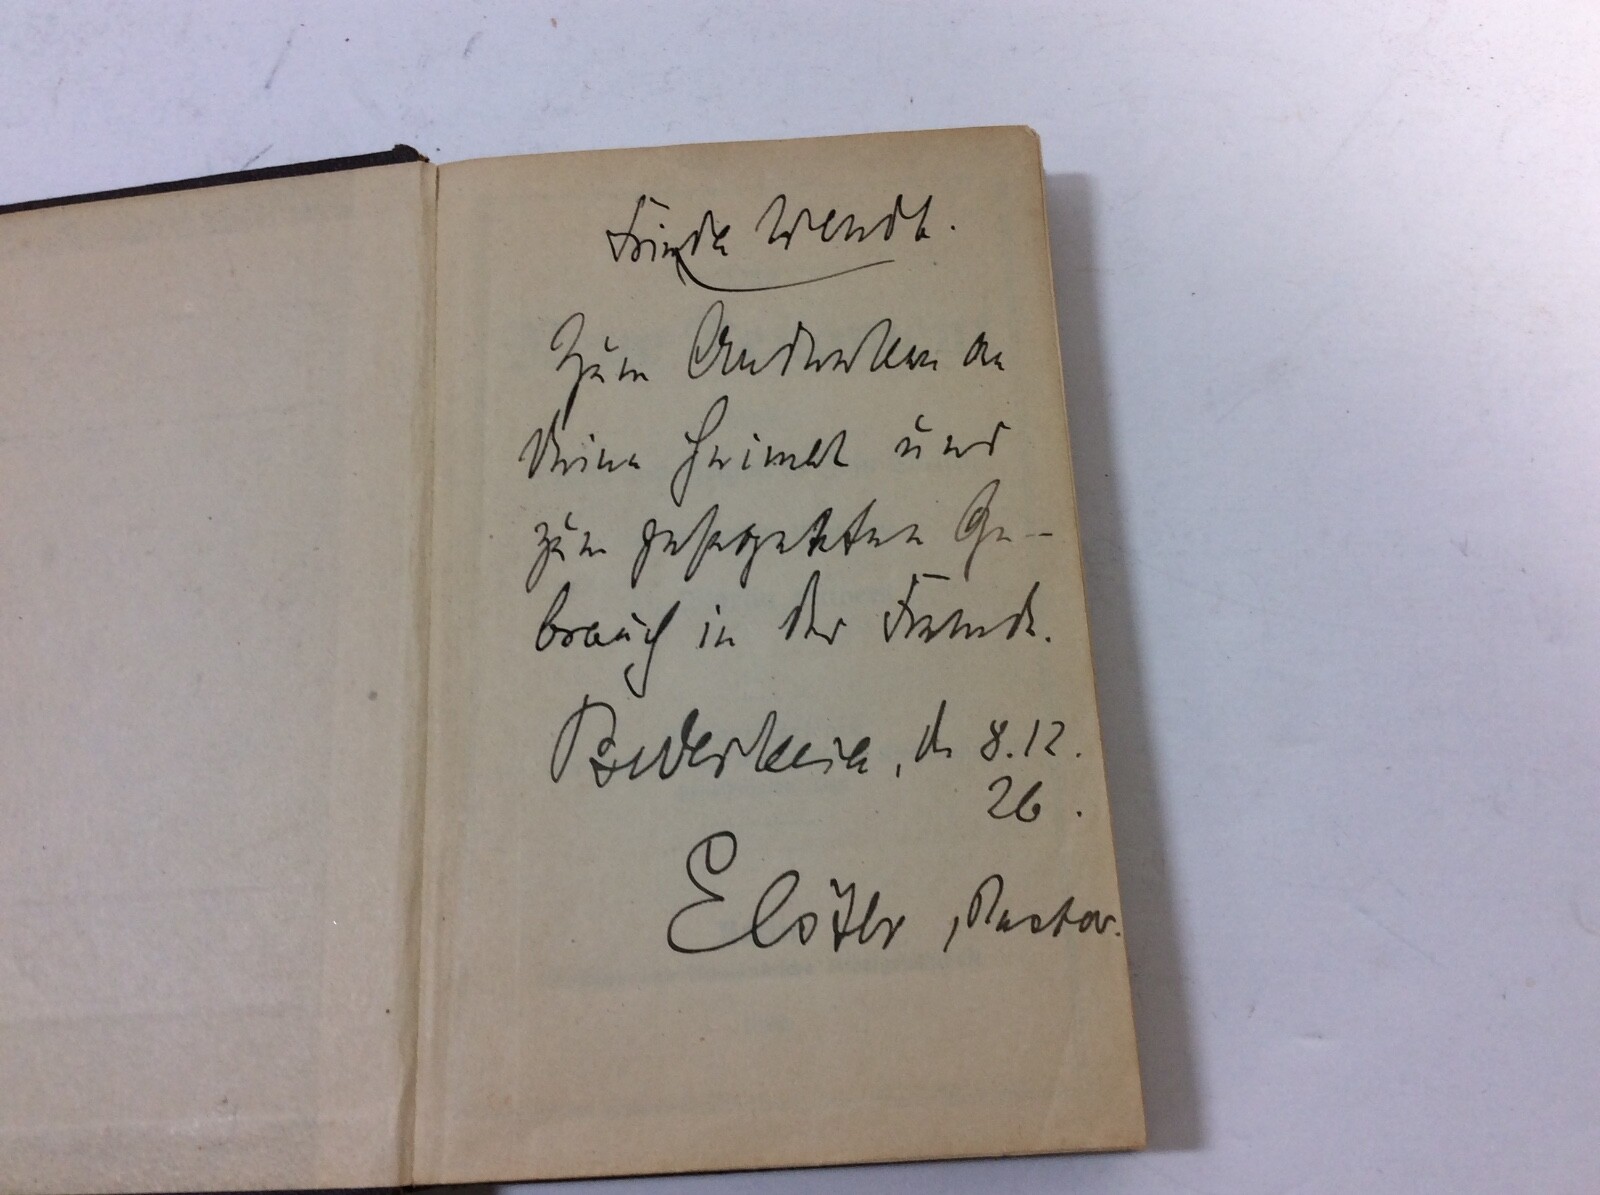 Frieda Wendt.
Zum Andenken an
Deine Heimat und
zum gesegneten Ge-
brauch in der Fremde.
, d. 8.12.
26.
Elster, Pastor.